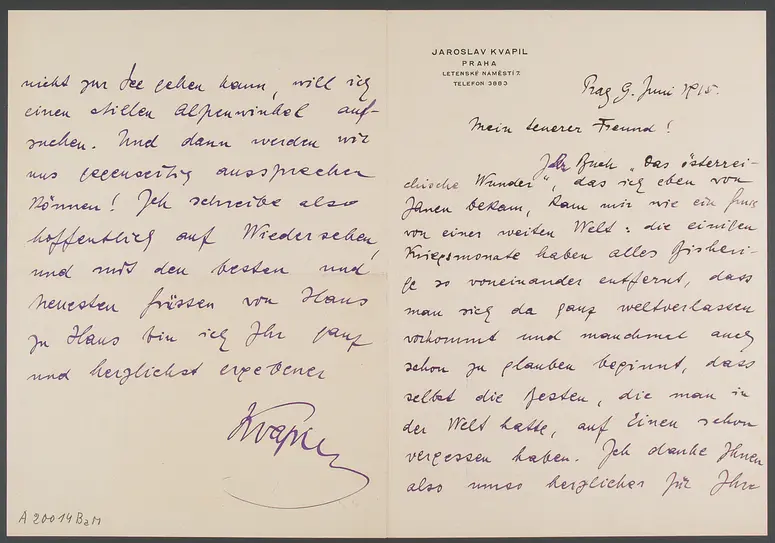 JAROSLAV KVAPIL
PRAHA
LETENSKÉ NÁMĚSTÍ 7.
TELEFON 3883
Prag 9. Juni 1915.
Mein teuerer Freund!
Ihr Buch „Das österrei-
chische Wunder", das ich eben von
Ihnen bekam, kam mir wie ein Gruss
von einer weiten Welt: die einigen
Kriegsmonate haben alles Bisheri-
ge so voneinander entfernt, dass
man sich da ganz weltverlassen
vorkommt und manchmal auch
schon zu glauben beginnt, dass
selbst die Besten, die man in
der Welt hatte, auf Einen schon
vergessen haben. Ich danke Ihnen
also umso herzlicher für Ihre
nicht zur See gehen kann, will ich
einen stillen Alpenwinkel auf-
suchen. Und dann werden wir
uns gegenseitig aussprechen
können! Ich schreibe also
hoffentlich auf Wiedersehen,
und mit den besten und
treuesten Grüssen von Haus
zu Haus bin ich Ihr ganz
und herzlichst ergebener
Kvapil
A 20014 BaM